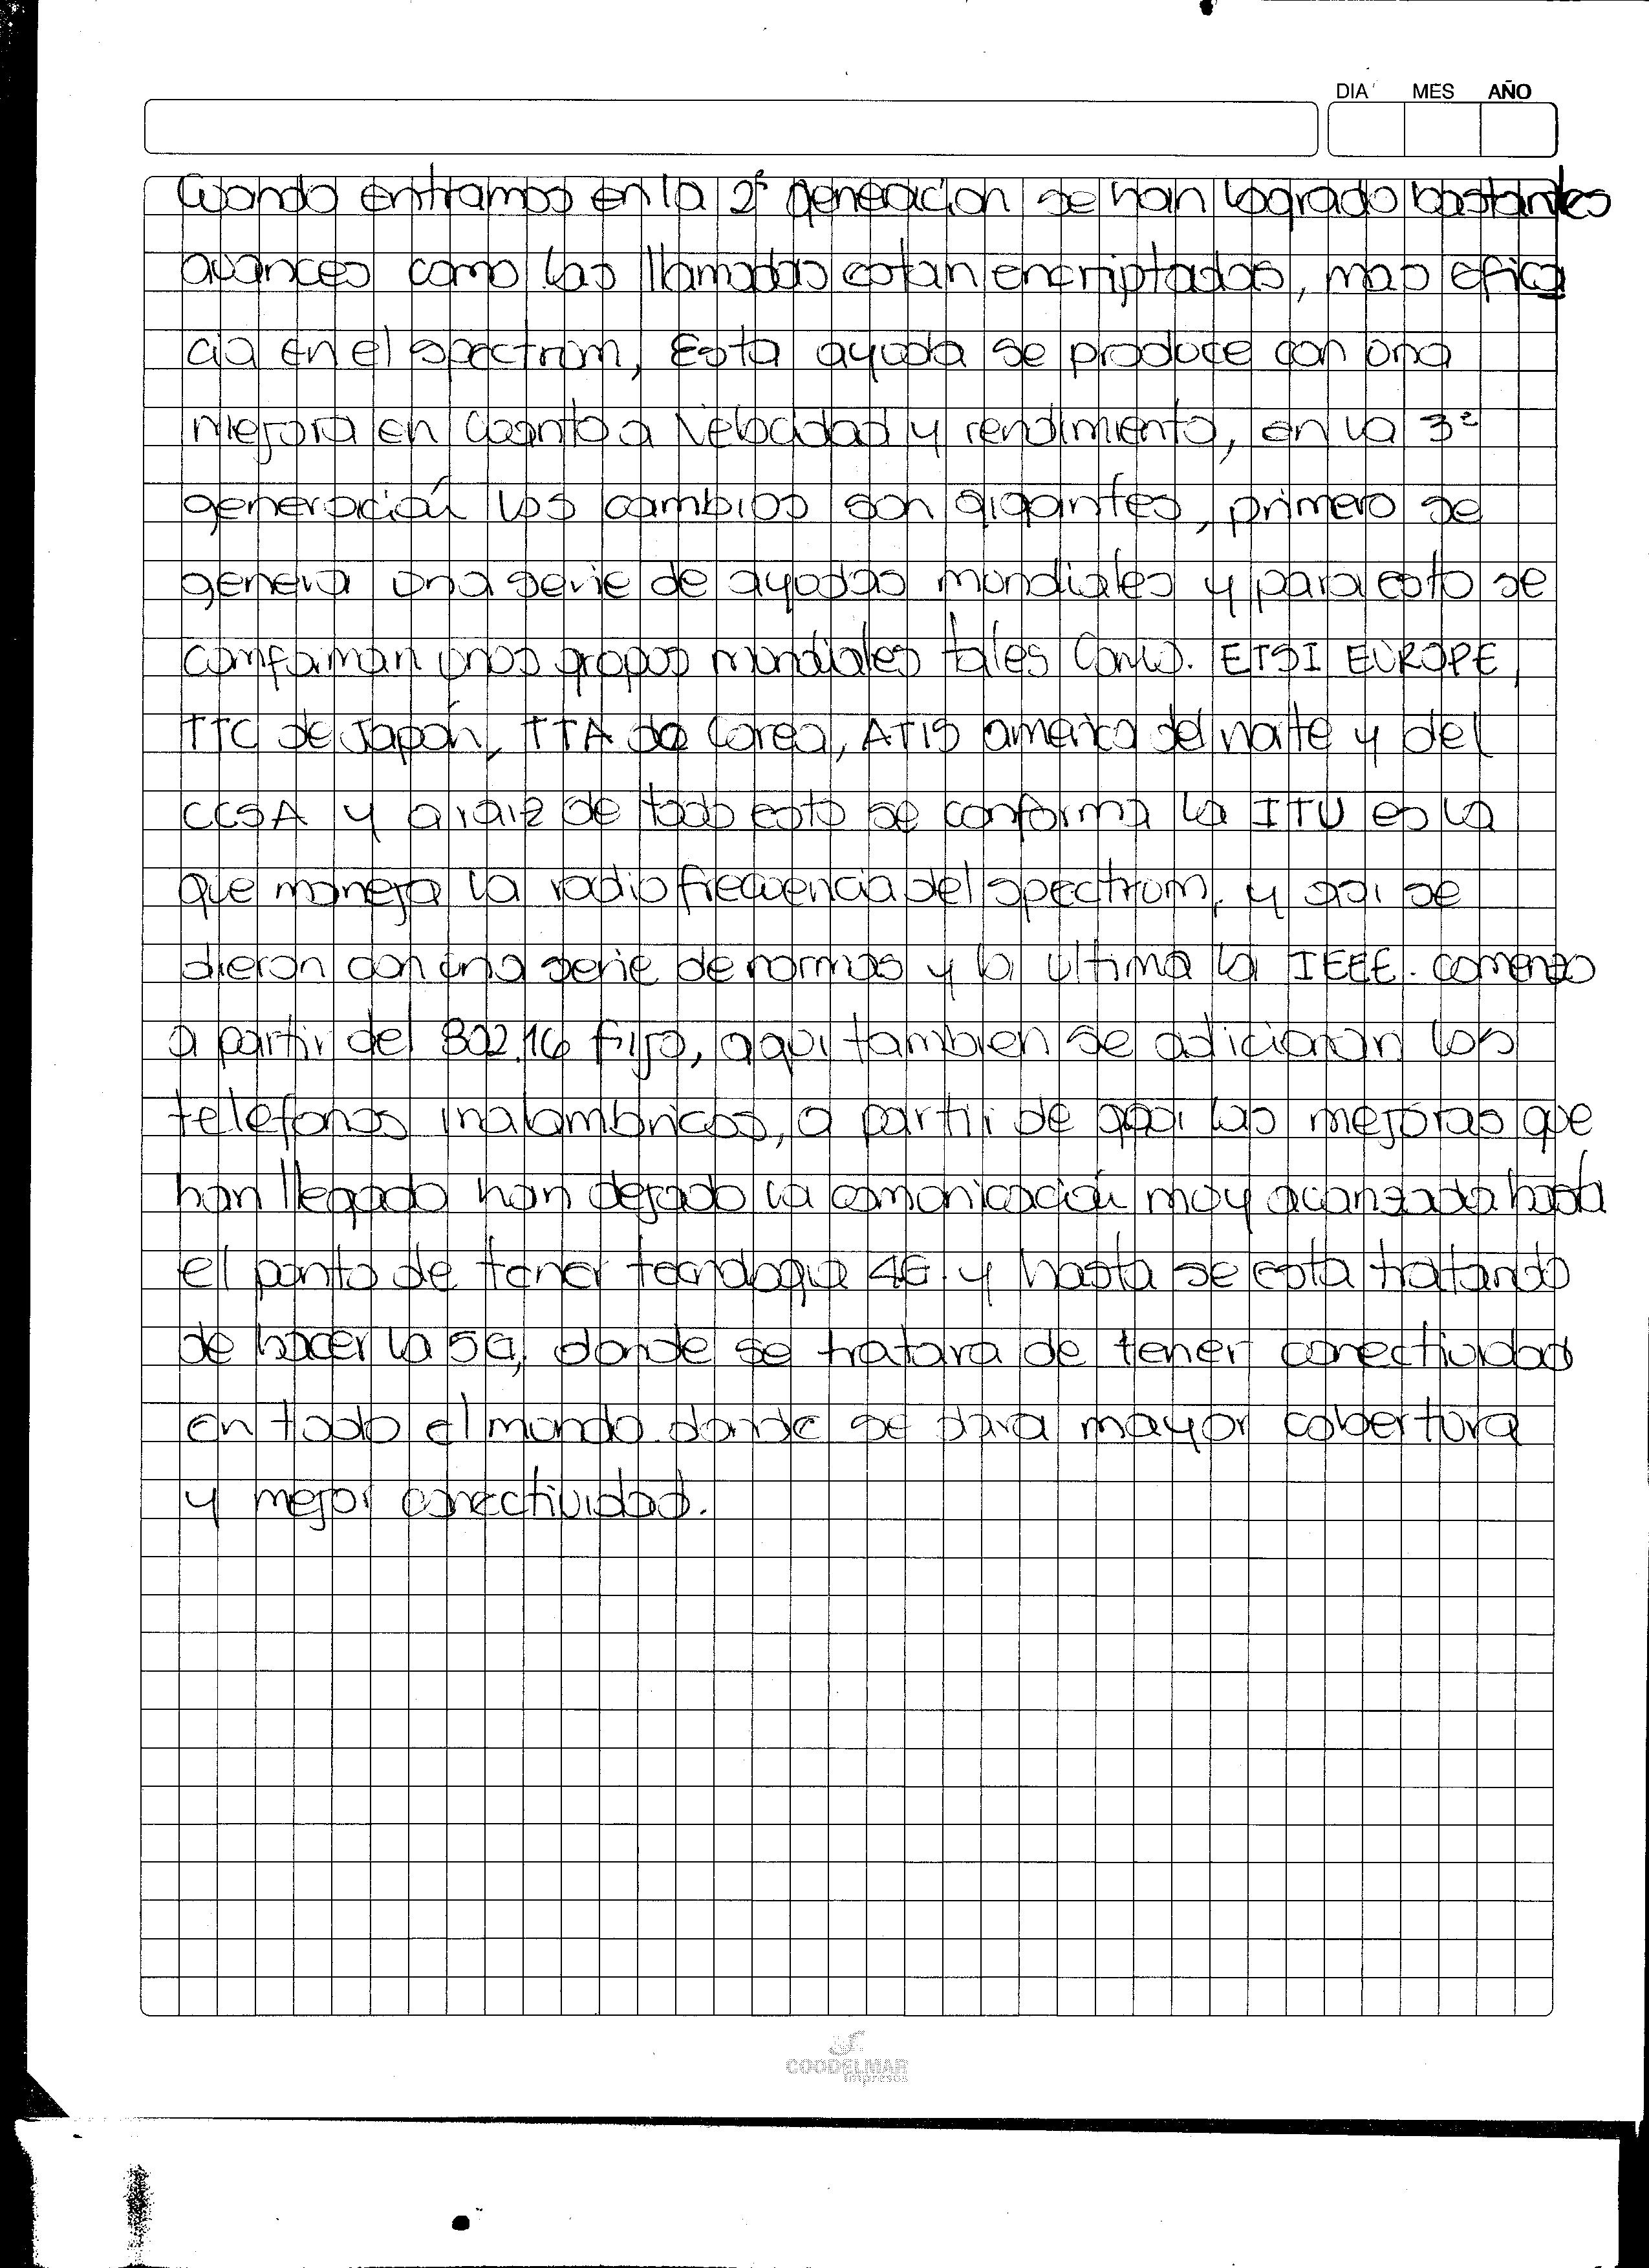 DIA MES AÑO
Cuando entramos en la 2ª generacion se han logrado bastantes
avances como las llamadas estan encriptadas, mas efica
cia en el spectrum, Esta ayuda se produce con una
mejora en cuanto a velocidad y rendimiento, en la 3ª
generación los cambios son gigantes, primero se
genera una serie de ayudas mundiales y para esto se
conforman unos grupos mundiales tales como. ETSI EUROPE,
TTC de Japón, TTA de Corea, ATIS america del norte y del
CCSA y a raiz de todo esto se conforma la ITU es la
que maneja la radio frecuencia del spectrum, y asi se
dieron con una serie de normas y la ultima la IEEE. comenzo
a partir del 802.16 fijo, aqui tambien se adicionan los
telefonos inalambricos, a partir de aqui las mejoras que
han llegado han dejado la comunicación muy avanzada hasta
el punto de tener tecnologia 4G. y hasta se esta tratando
de hacer la 5G, donde se tratara de tener conectividad
en todo el mundo donde se dara mayor cobertura
y mejor conectividad.
COODELMAR
impresos